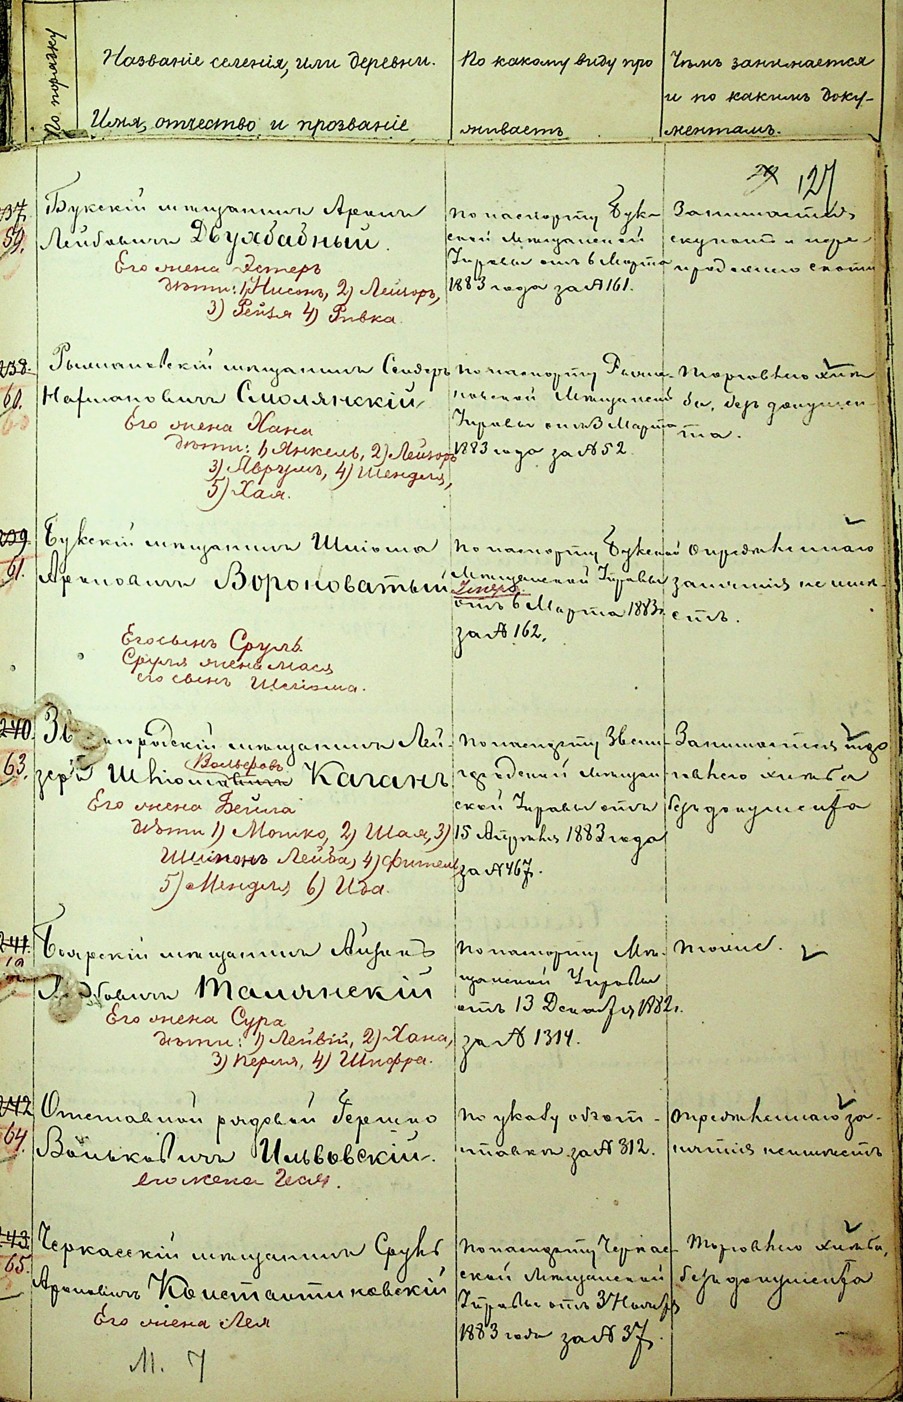 По порядку
Названіе селенія, или деревни.
Имя, отчество и прозваніе
По какому виду про
живаетъ
Чѣмъ занимается
и по какимъ доку-
ментамъ.
127
237.
59.
Букскій мѣщанинъ Аронъ
Лейбовичъ Двухбабный.
Его жена Эстеръ
дѣти: 1) Нисонъ, 2) Лейзоръ,
3) Рейзя 4) Ривка.
по паспорту Бук-
ской Мѣщанской
Управы отъ 6 Марта
1883 года за № 161.
Занимается
скупкою и пере-
продажею скота
238.
60.
мѣщанинъ Сендеръ
Нафтановичъ Смолянскій
Его жена Хана
дѣти: 1) Янкель, 2) Лейзоръ
3) Аврумъ, 4) Шендля,
5) Хая.
по паспорту
Мѣщанской
Управы отъ 3 Марта
1883 года за № 52.
Торговлею хлѣ-
ба, безъ докумен-
та.
239
61.
Букскій мѣщанинъ Шліома
Ароновичъ Вороноватый
Его сынъ Сруль
Сруля жена Мася
его сынъ Шліома.
по паспорту Букской
Мѣщанской Управы
отъ 6 Марта 1883 г.
за № 162.
Опредѣленнаго
занятія не имѣ-
етъ.
240.
63.
Зв городскій мѣщанинъ Лей-
зеръ Вольфовъ Каганъ
Его жена Бейла
дѣти 1) Мошко, 2) Шая, 3)
Шлімонъ Лейба, 4)
5) Мендля 6) Ида.
по паспорту Звени-
городской мѣщан-
ской Управы отъ
15 Апрѣля 1883 года
за № 467.
Занимается тор
говлею хлѣба
безъ документа
241.
Боярскій мѣщанинъ Айзикъ
Лейбовичъ Талянскій
Его жена Сура
дѣти: 1) Лейвій, 2) Хана,
3) Перля, 4) Шифра.
по паспорту Мѣ-
щанской Управы
отъ 13 Декабря 1882 г.
за № 1314.
тоже.
242
64.
Отставной рядовой Гершко
Вольковичъ Ильвовскій.
его жена Гея.
по указу объ от-
ставкѣ за № 312.
Опредѣленнаго за-
нятія не имѣетъ
243.
65.
Черкасскій мѣщанинъ Сруль
Ароновичъ Константиновскій
Его жена Лея
по паспорту Черкас-
ской Мѣщанской
Управы отъ 3 Ноября
1883 года за № 37.
Торговлею хлѣба,
безъ документа
М. 7